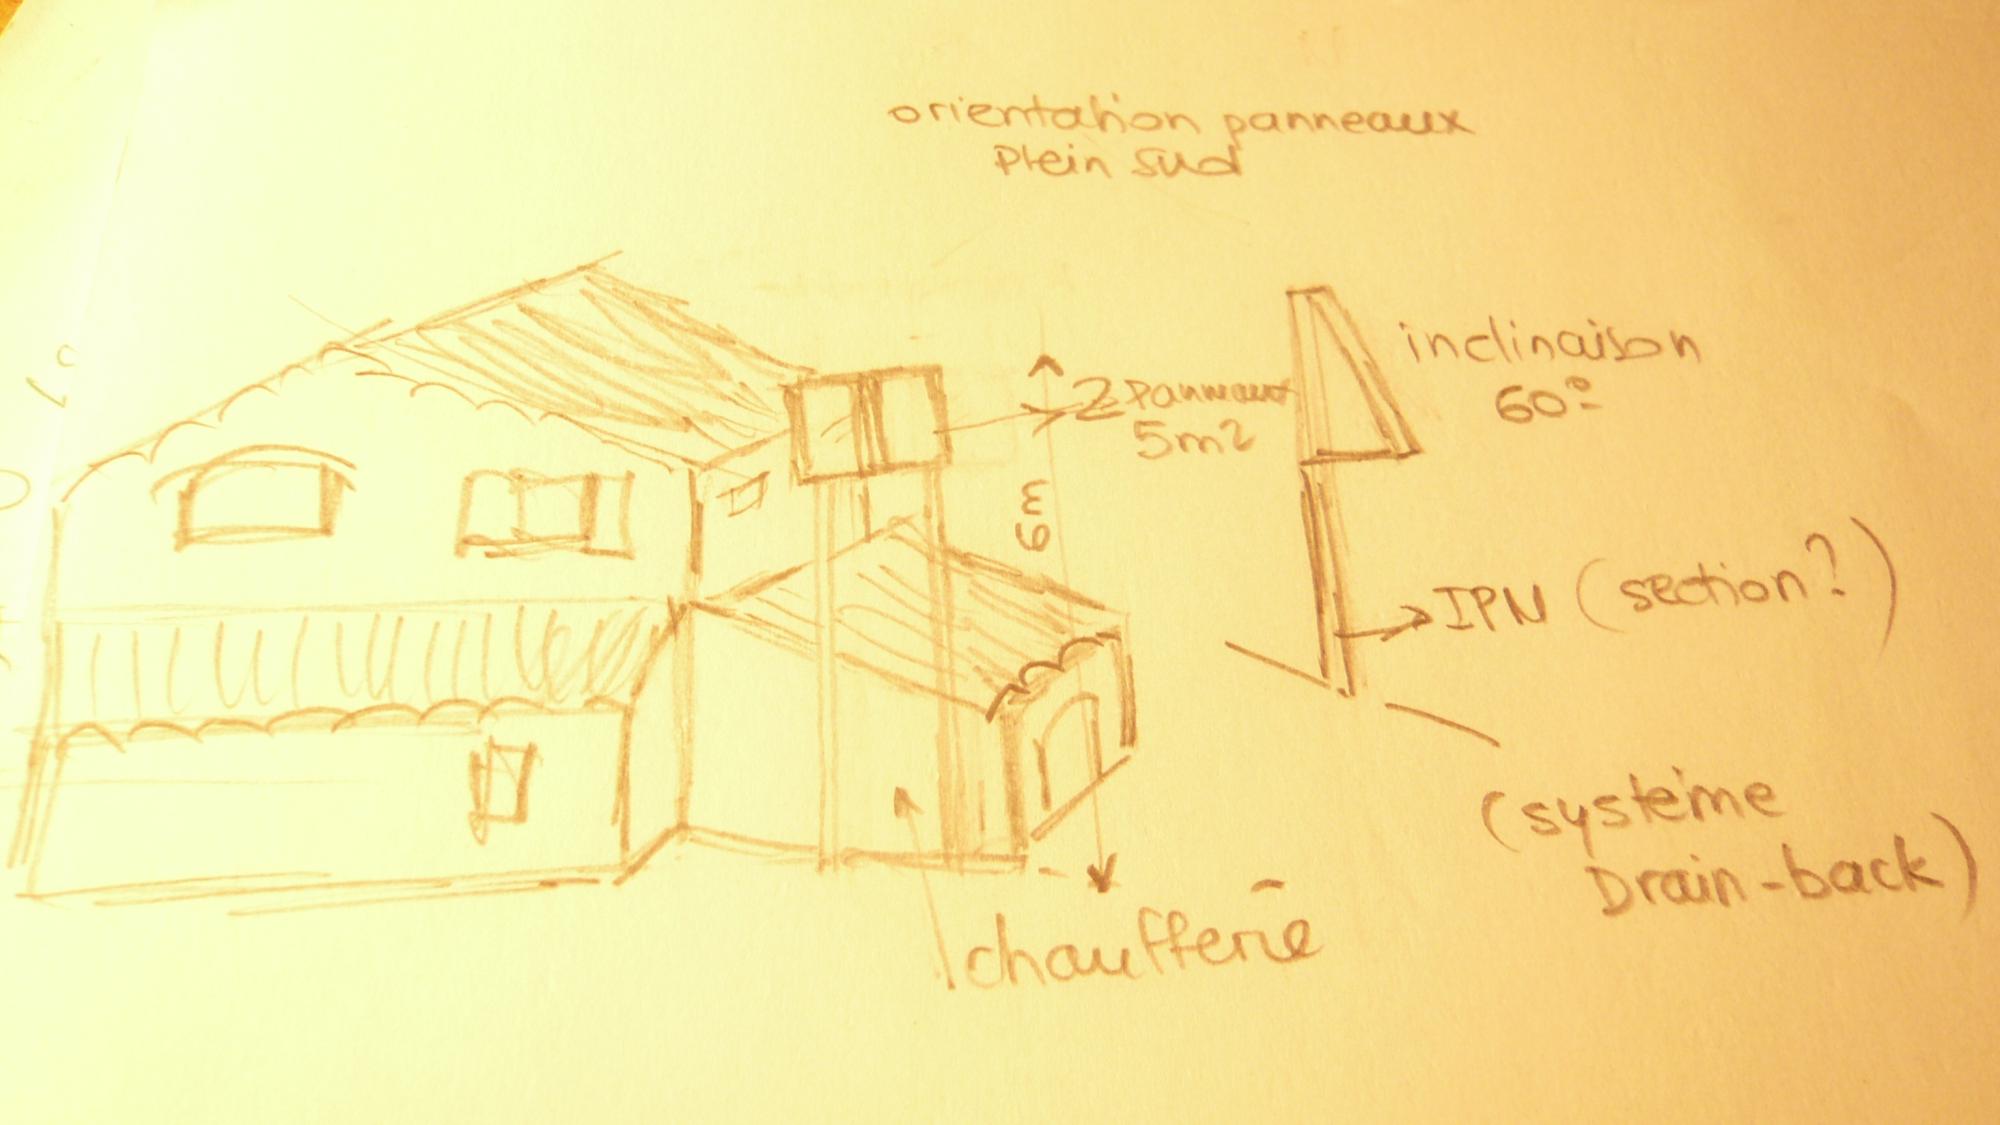 orientation panneaux
plein sud
2 panneaux
5m2
6m
inclinaison
60°
IPN (section?)
(système
Drain-back)
chaufferie